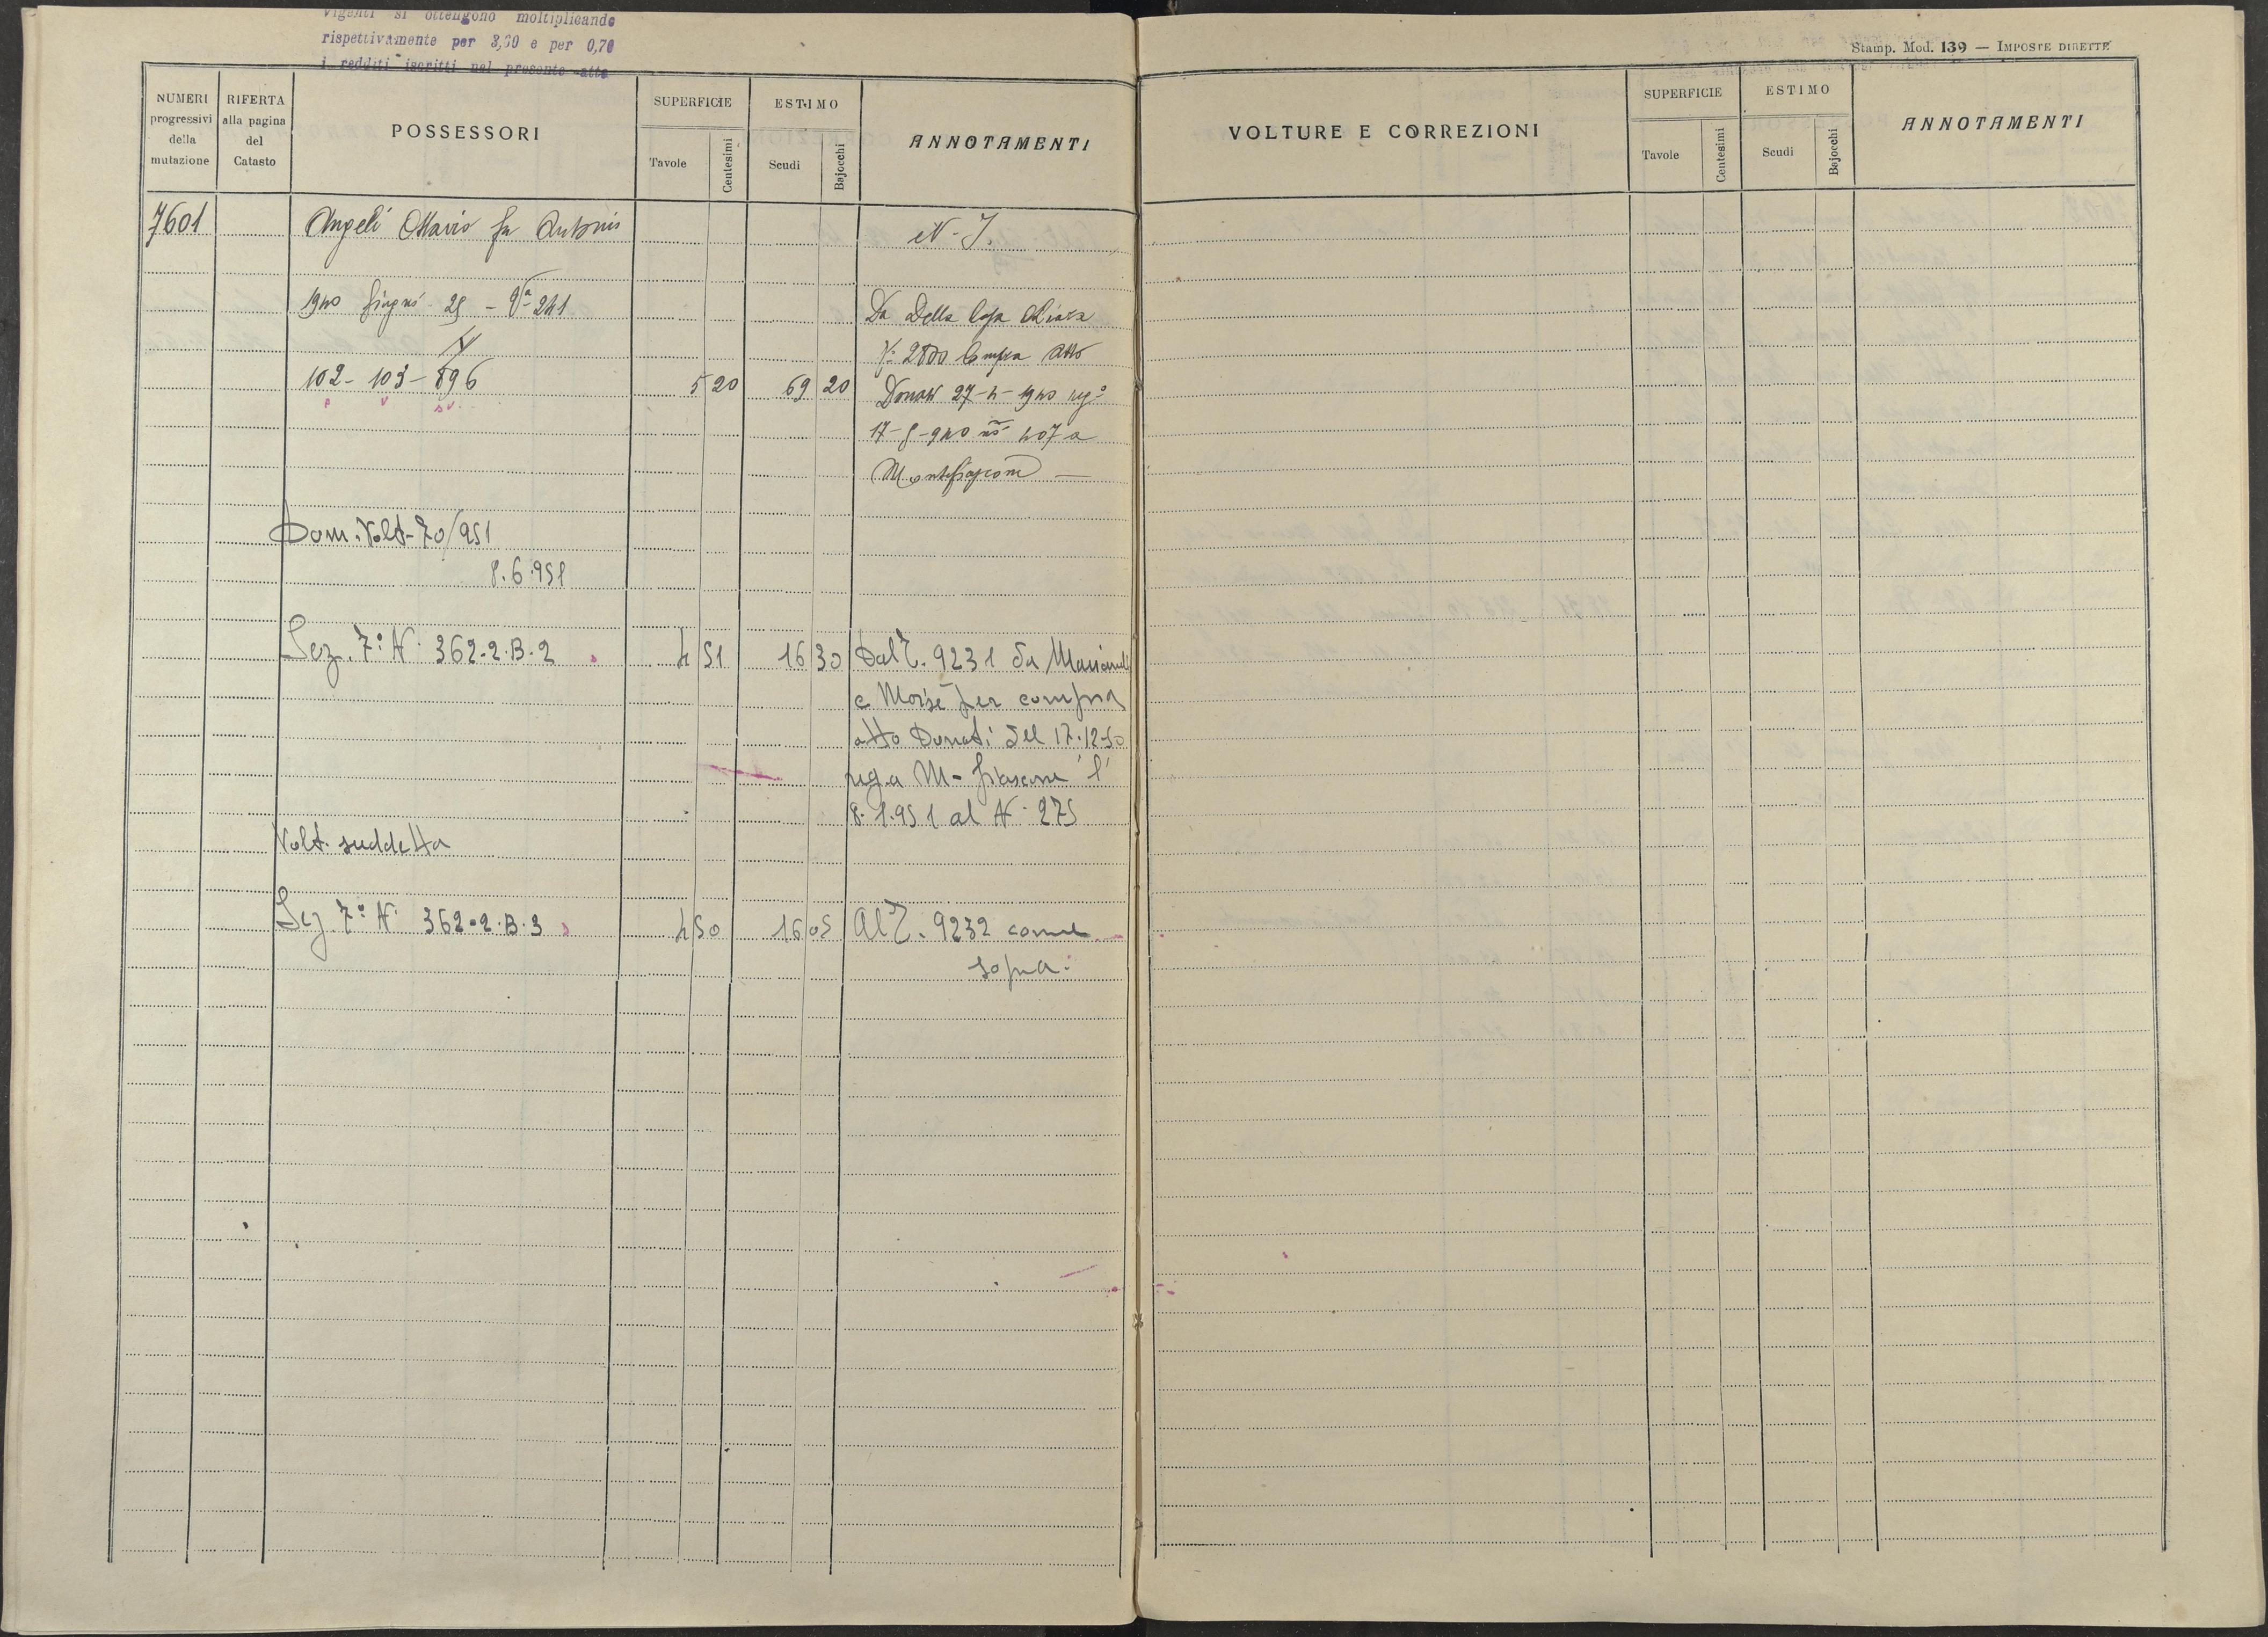 vigenti si ottengono moltiplicando
rispettivamente per 3,60 e per 0,70
i redditi iscritti nel presente atto
Stamp. Mod. 139 — IMPOSTE DIRETTE
NUMERI progressivi della mutazione
RIFERTA alla pagina del Catasto
POSSESSORI
SUPERFICIE
Tavole
Centesimi
ESTIMO
Scudi
Bajocchi
ANNOTAMENTI
VOLTURE E CORREZIONI
SUPERFICIE
Tavole
Centesimi
ESTIMO
Scudi
Bajocchi
ANNOTAMENTI
7601 Angeli Ottavio fu Antonio
1940 Giugno 25 - Va 241 Da Della Casa
V: 2800 Compra Atto
IV
102 - 103 - 896 5 20 69 20 Donati 27-4-1940 rego
940 no 407 a
Montefiascone
Dom. Volt. 70/951
8.6.951
Sez. 7a N. 362.2.B.2 4 51 16 30 Dal 9231 da
e Moisè per compra
atto Donati del 17.12.50
reg. a M-fiascone l'
8.1.951 al N. 275
Volt. suddetta
Sez. 7a N. 362.2.B.3 4 50 16 05 Al 9232 come
sopra.